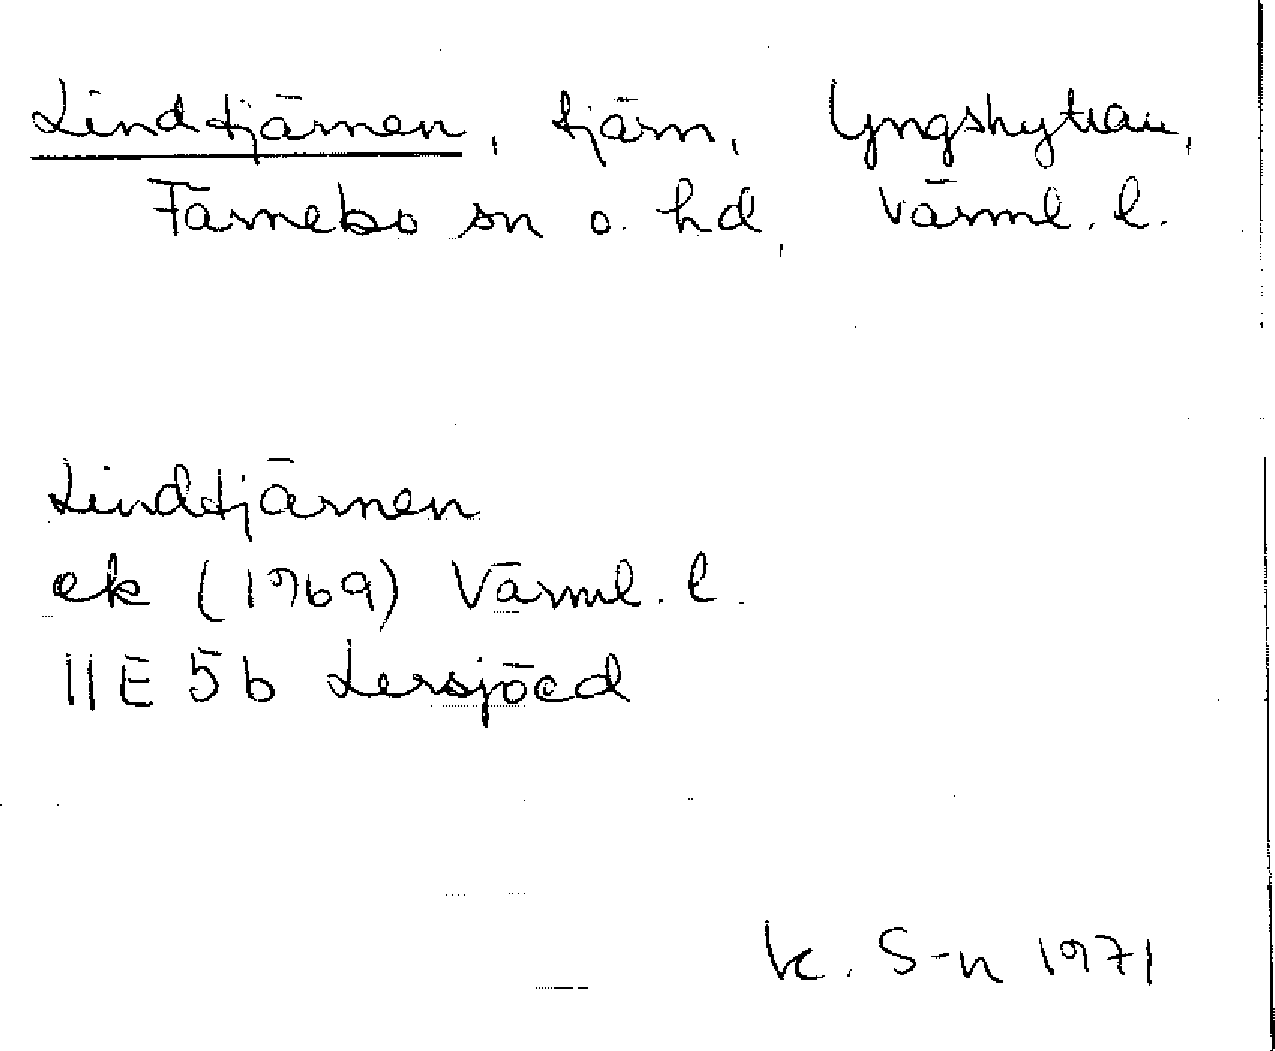 Lindtjärnen, tjärn, Yngshyttan,
Färnebo sn o. hd, Värml. l.
Lindtjärnen
ek (1969) Värml. l.
11E 5b Lersjöed
k. S-n 1971